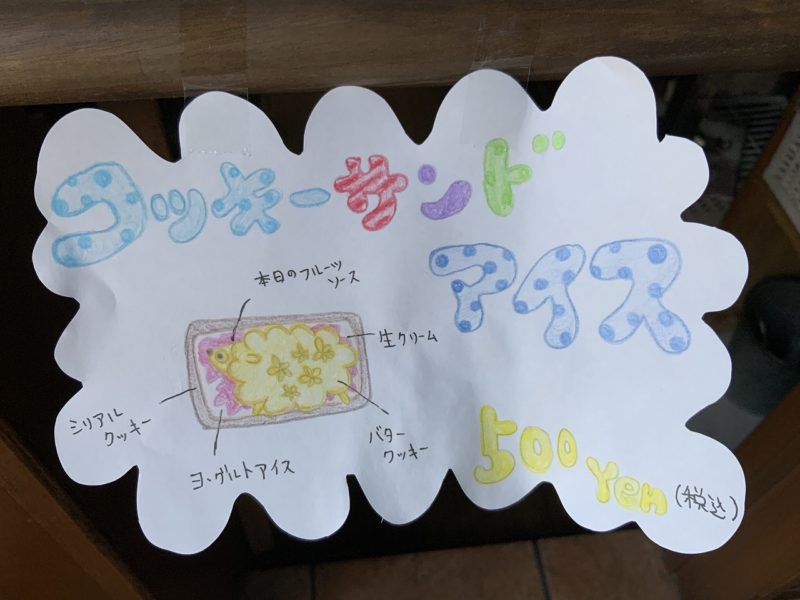 クッキーサンド
アイス
本日のフルーツ
ソース
生クリーム
シリアル
クッキー
ヨーグルトアイス
バター
クッキー
500 Yen (税込)